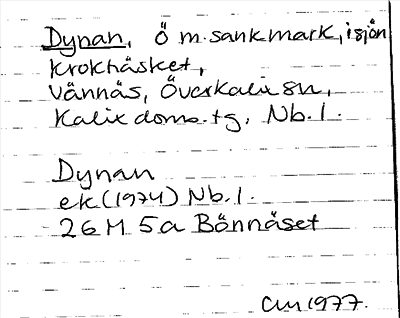 Dynan, Ö m. sankmark, i sjön
Krokträsket,
Vännäs, Överkalix sn,
Kalix doms. tg, Nb. l.
Dynan
ek (1974) Nb. l.
26 M 5a Bönnäset
1977.